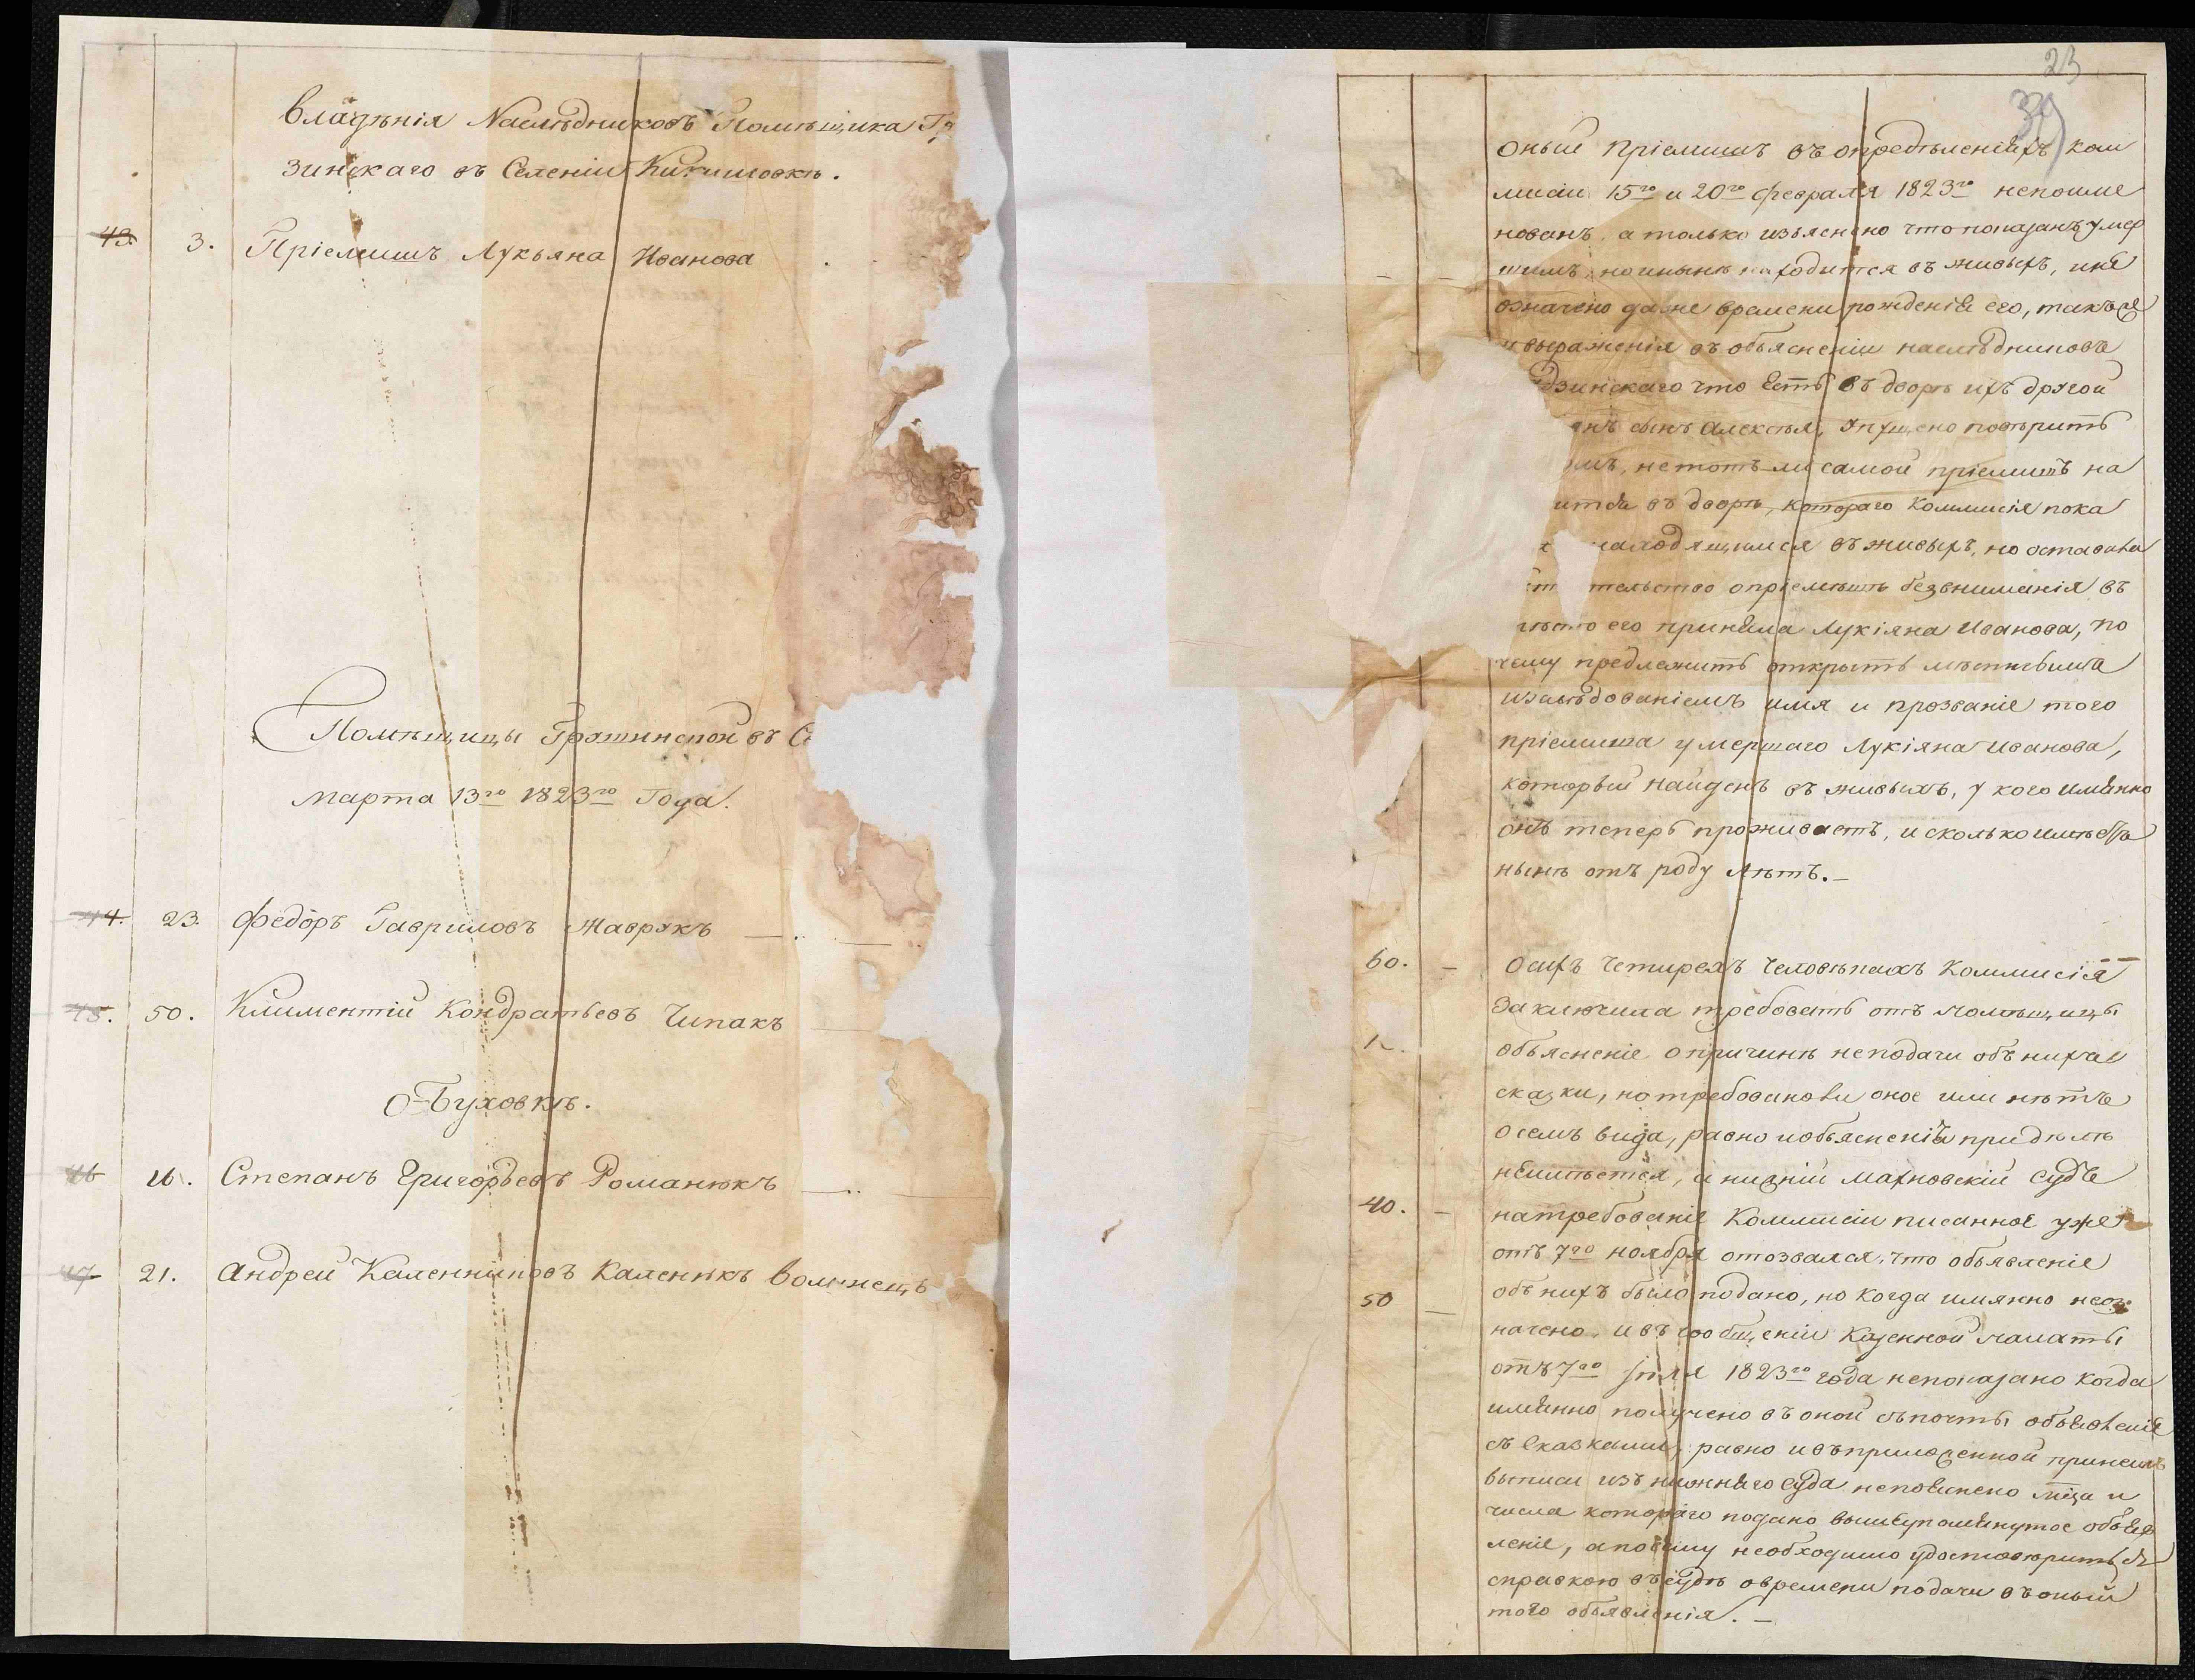 владѣнія Наслѣдниковъ Помѣщика Гр
зинскаго въ Селеніи Кикишовкѣ.
43. 3. Пріемишъ Лукьяна Иванова
Помѣщицы Грошинской въ С
марта 13го 1823го Года.
44. 23. Федоръ Гавриловъ Жаврукъ
45. 50. Климентій Кондратьевъ Чипакъ
Обуховкѣ.
46 16. Степанъ Григорьевъ Романюкъ
47 21. Андрей Каленниковъ Каленюкъ Волинецъ
23
39
оный Пріемишъ въ опредѣленіяхъ ком
мисіи 15го и 20го февраля 1823го непоиме
нованъ, а только изъяснено что показанъ умер
шимъ, но нынѣ находится въ живыхъ, и не
означено даже времени рожденія его, такъ
и выраженія въ объясненіи наслѣдниковъ
дзинскаго что есть въ дворѣ ихъ другой
анъ сынъ Алексѣя, упущено повѣрить
имъ, не тотъ-ли самой пріемишъ на
ится въ дворѣ, котораго Коммисія пока
находящимся въ живыхъ, но оставила
тельство о пріемышѣ безъ вниманія въ
мѣсто его приняла Лукіяна Иванова, по
чему предлежитъ открыть мѣстнымъ
изслѣдованіемъ имя и прозваніе того
пріемиша умершаго Лукіяна Иванова,
который найденъ въ живыхъ, у кого имянно
онъ теперь проживаетъ, и сколько имѣетъ
нынѣ отъ роду лѣтъ.
60. О сихъ четырехъ человѣкахъ Коммисія
заключила требовать отъ помѣщицы
объясненіе о причинѣ неподачи объ нихъ
сказки, но требовано ли оное или нѣтъ
о семъ вида, равно и объясненія при дѣлѣ
неимѣется, а нижній Махновскій Судъ
40. на требованіе Коммисіи писанное уже
отъ 7го ноября отозвался, что объявленіе
50 объ нихъ было подано, но когда имянно неоз
начено, и въ сообщеніи Казенной палаты
отъ 7го Іюля 1823го года непоказано когда
имянно получено въ оной съ почты объявленіе
съ сказками, равно и въ приложенной при немъ
выписи изъ нижняго суда непояснено мѣсяца и
числа котораго подано вышеупомянутое объяв
леніе, а потому необходимо удостовѣриться
справкою въ судѣ о времени подачи въ оный
того объявленія.